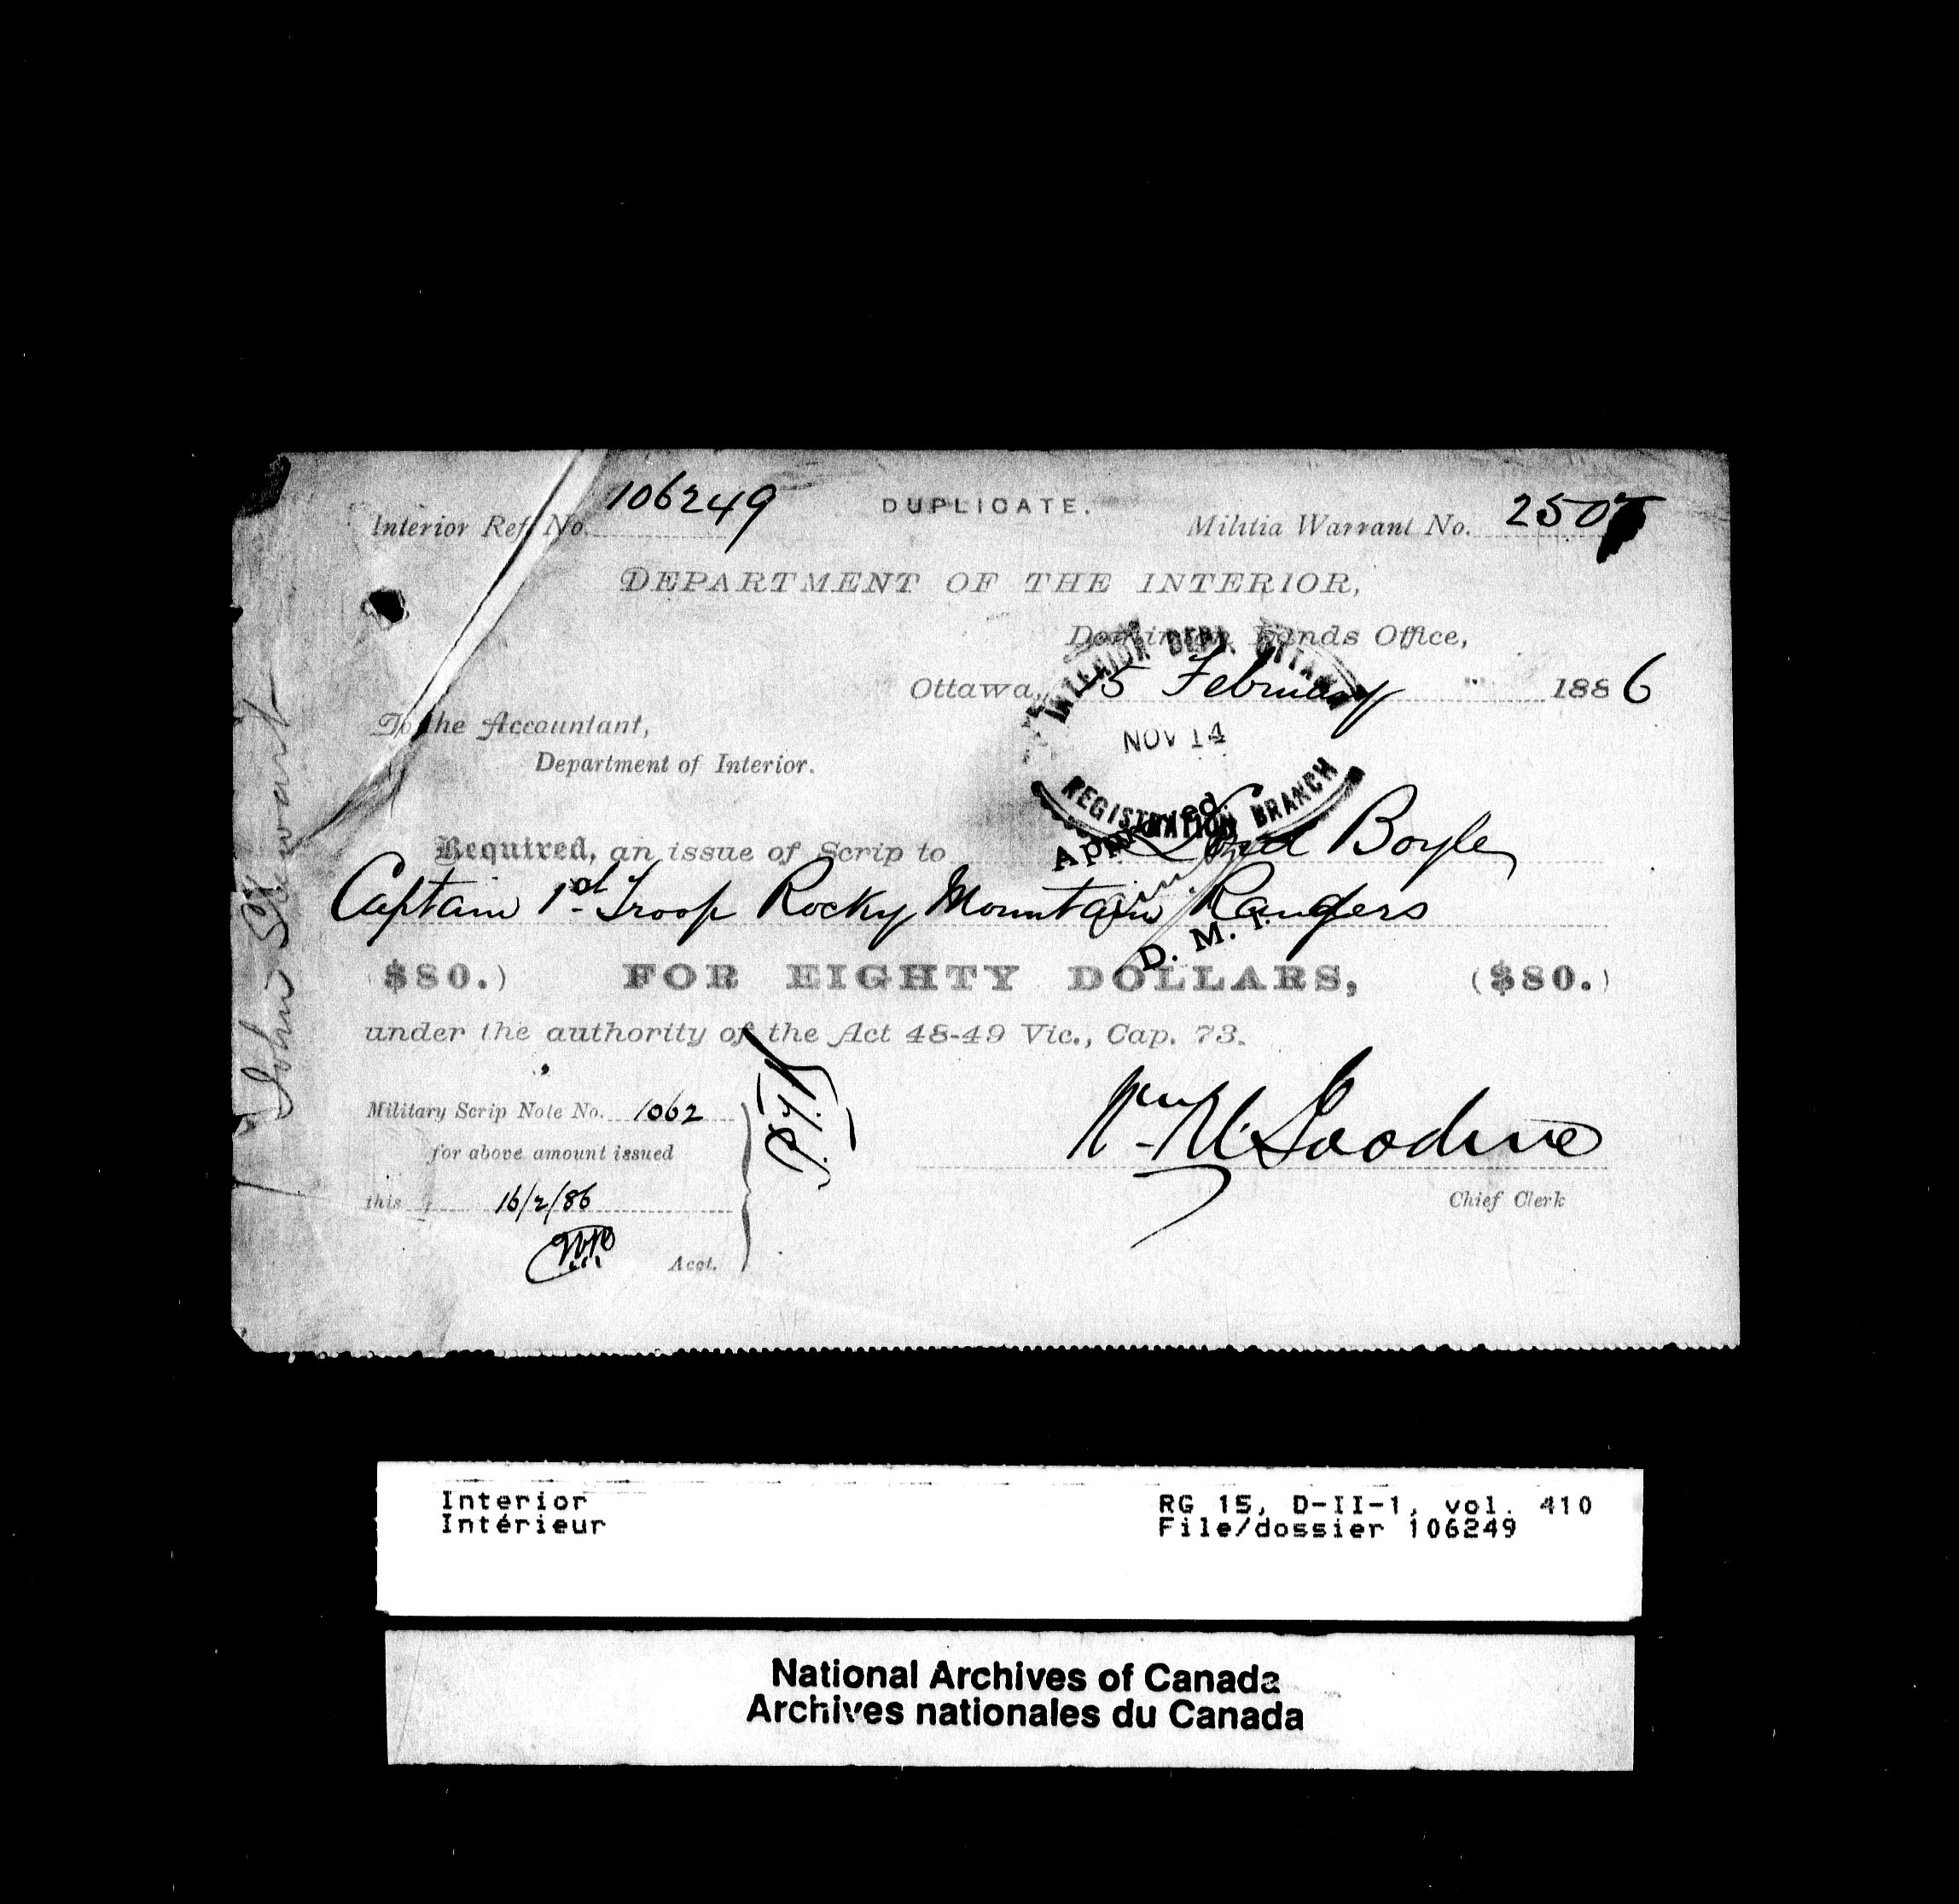 106249
DUPLICATE.
Interior Ref. No.
Militia Warrant No.
DEPARTMENT OF THE INTERIOR,
Dominion Lands Office,
Ottawa, 15 February 1886
INTERIOR DEPT. OTTAWA
NOV 14
REGISTRATION BRANCH
To the Accountant,
Department of Interior.
Approved.
Required, an issue of Scrip to Lord Boyle
Captain 1st Troop Rocky Mountain Rangers
D. M. I.
$80.) FOR EIGHTY DOLLARS, ($80.)
under the authority of the Act 48-49 Vic., Cap. 73.
Military Scrip Note No. 1062
for above amount issued
this 16/2/86
Acct.
Chief Clerk
John Stewart
Interior
Intérieur
RG 15, D-II-1, vol. 410
File/dossier 106249
National Archives of Canada
Archives nationales du Canada